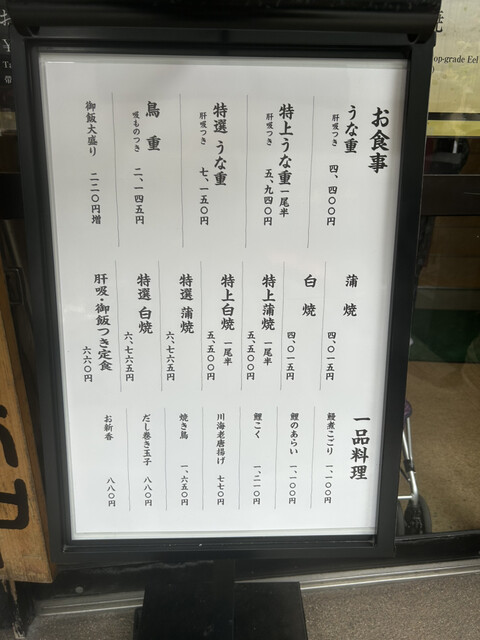 お食事
うな重
肝吸つき
四、四〇〇円
特上うな重 一尾半
肝吸つき
五、九四〇円
特選 うな重
肝吸つき
七、一五〇円
鳥重
吸ものつき
二、一四五円
御飯大盛り
二二〇円増
蒲焼
四、〇一五円
白焼
四、〇一五円
特上蒲焼 一尾半
五、五〇〇円
特上白焼 一尾半
五、五〇〇円
特選 蒲焼
六、七六五円
特選 白焼
六、七六五円
肝吸・御飯つき定食
六六〇円
一品料理
鰻煮こごり
一、一〇〇円
鯉のあらい
一、一〇〇円
鯉こく
一、二一〇円
川海老唐揚げ
七七〇円
焼き鳥
一、六五〇円
だし巻き玉子
八八〇円
お新香
八八〇円
op-grade Eel